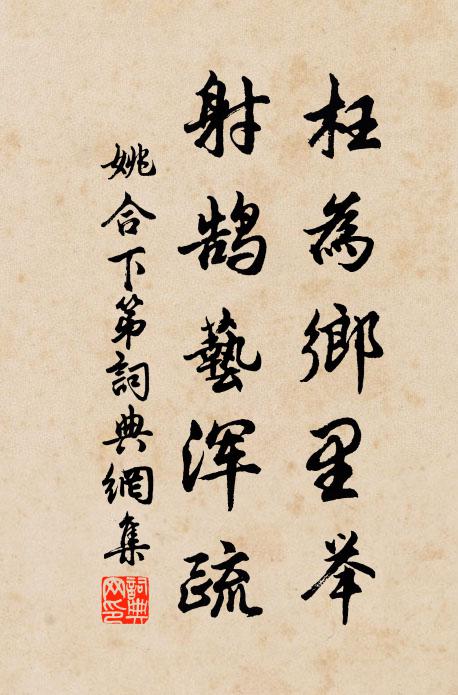 枉為鄉里举
射鹄藝浑疏
姚合下第詞典網集
詞典網印